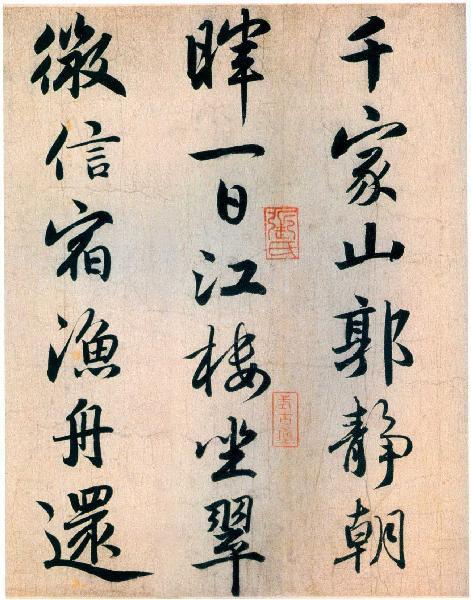 千家山郭靜朝
暉一日江樓坐翠
微信宿漁舟還